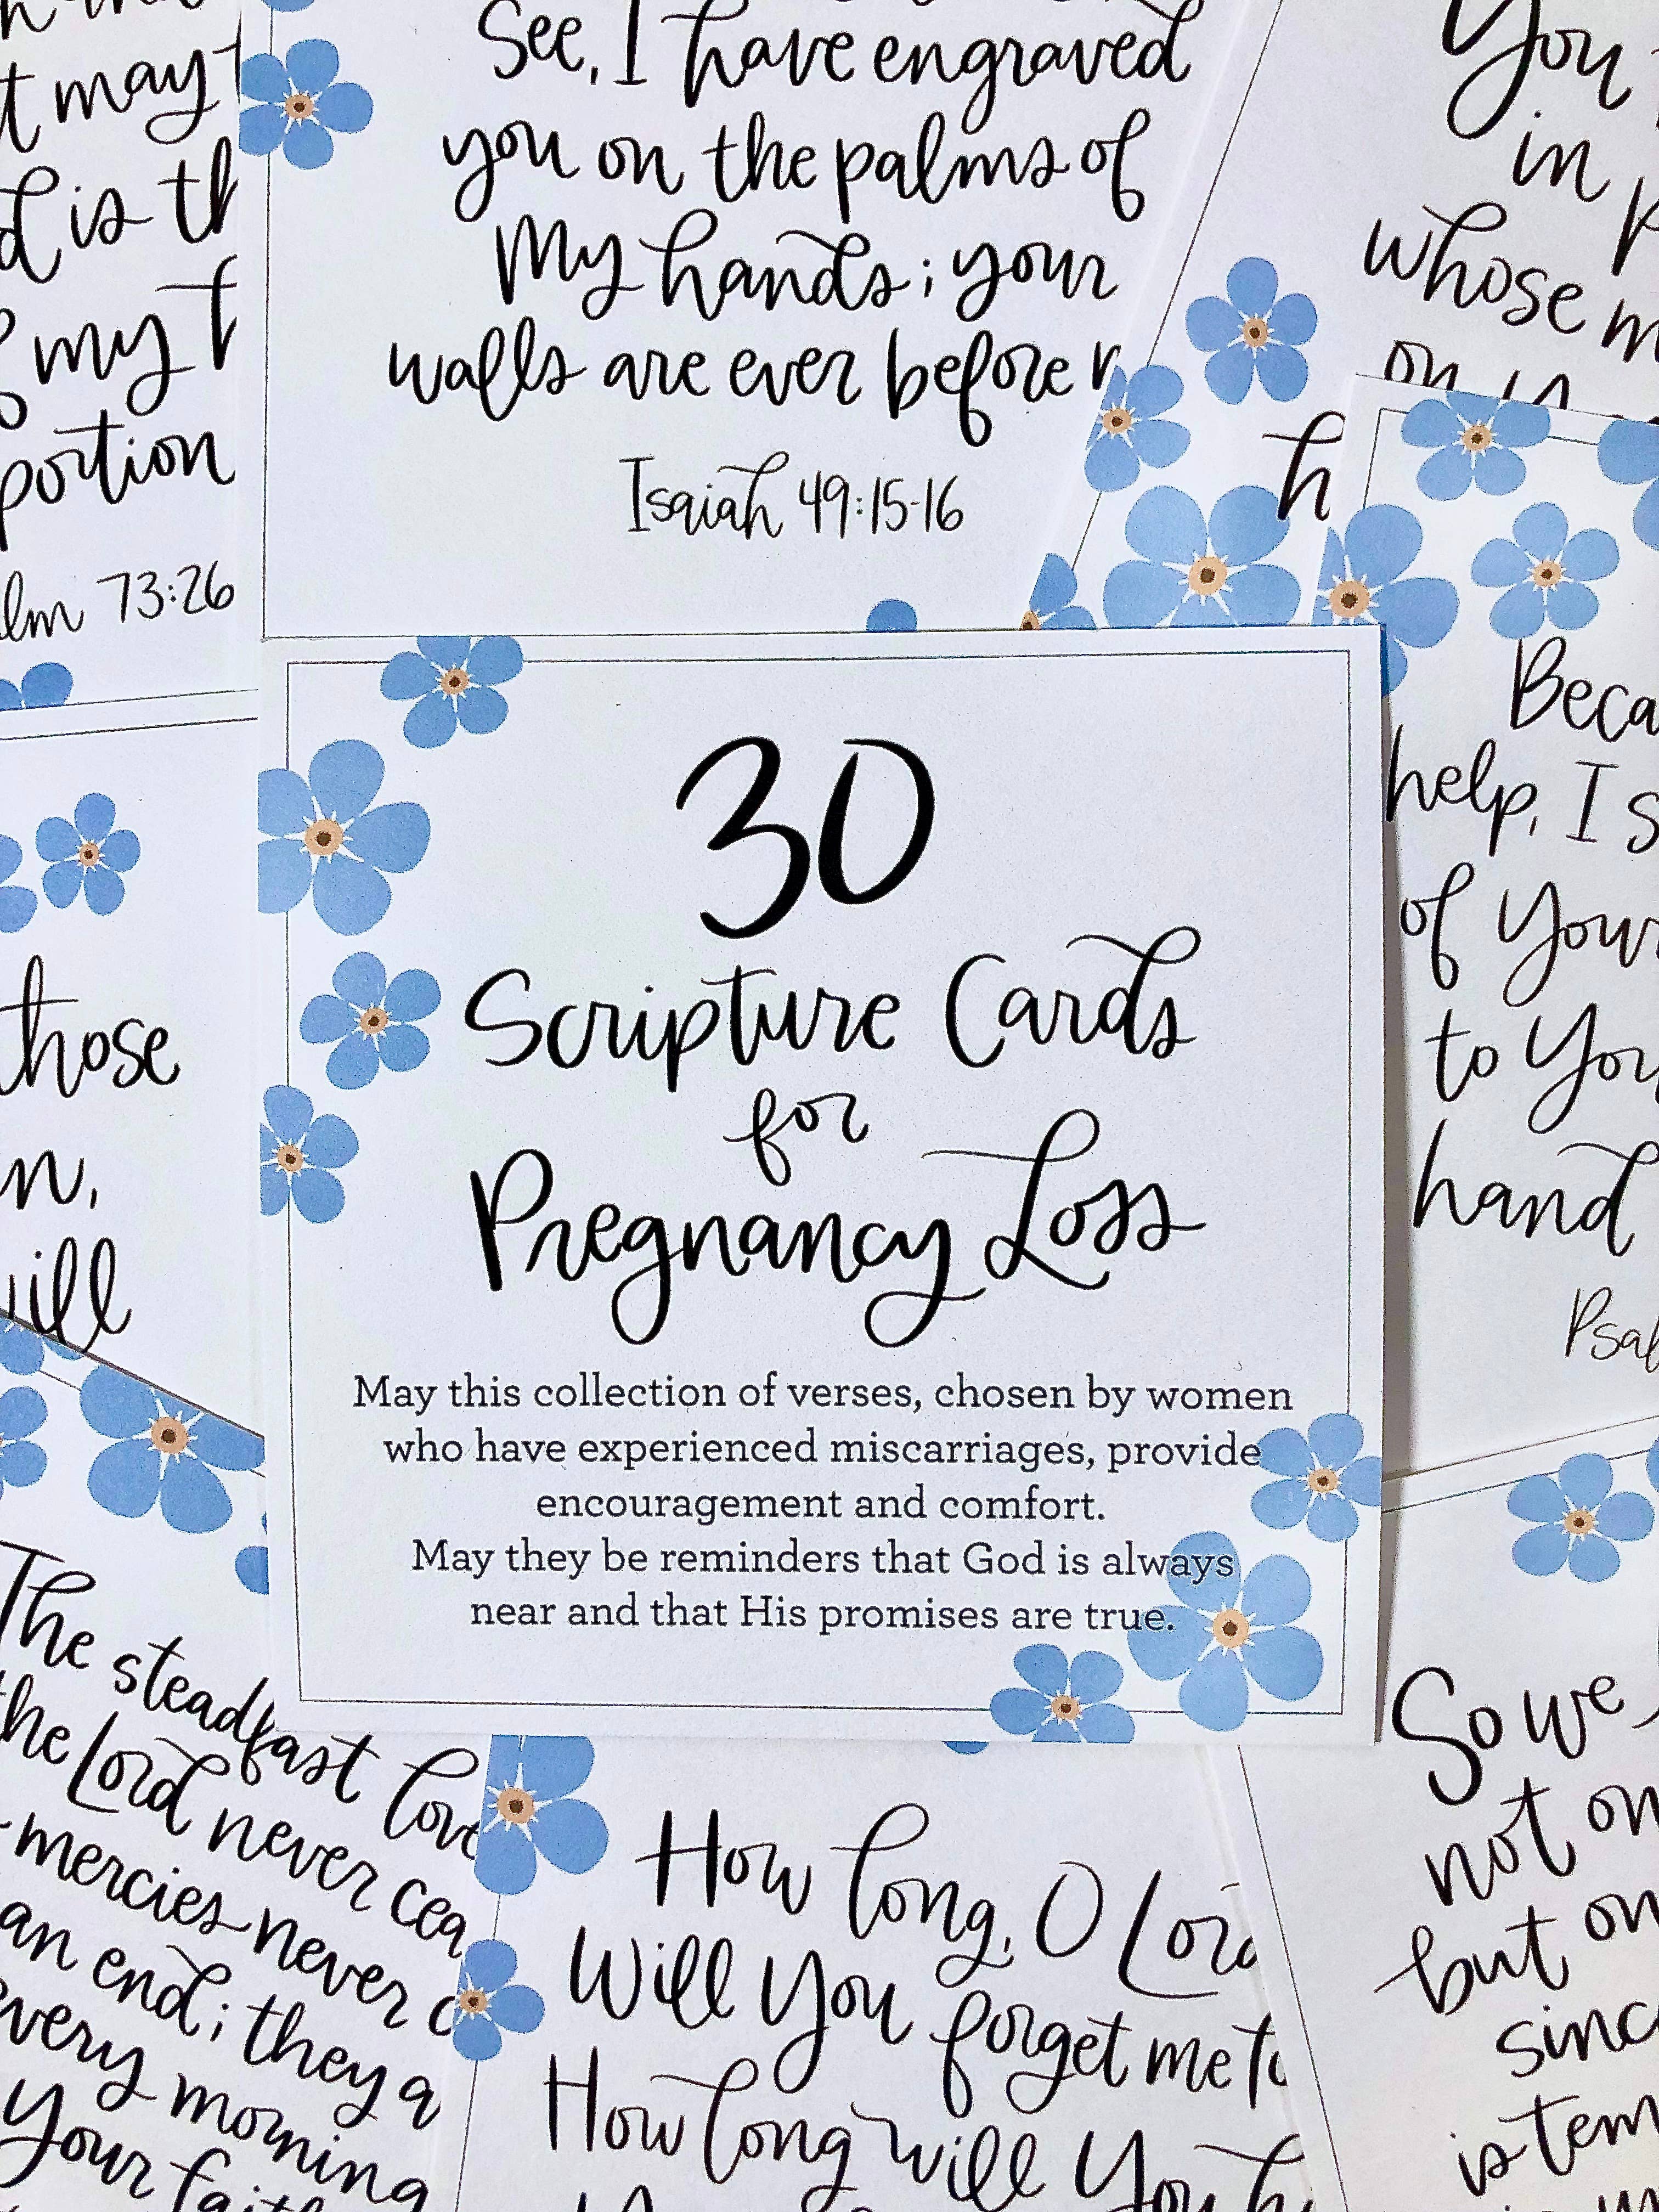 may
is
my
portion
73:26
See, I have engraved
you on the palms of
My hands; your
walls are ever before
Isaiah 49:15-16
You
in
whose
on
help, I
of Your
to You
hand
30
Scripture Cards
for
Pregnancy Loss
May this collection of verses, chosen by women
who have experienced miscarriages, provide
encouragement and comfort.
May they be reminders that God is always
near and that His promises are true.
those
The steadfast love
the Lord never
mercies never
an end; they
every morning
Your
How long, O Lord
Will You forget me
How long will You
So we
not
but
is